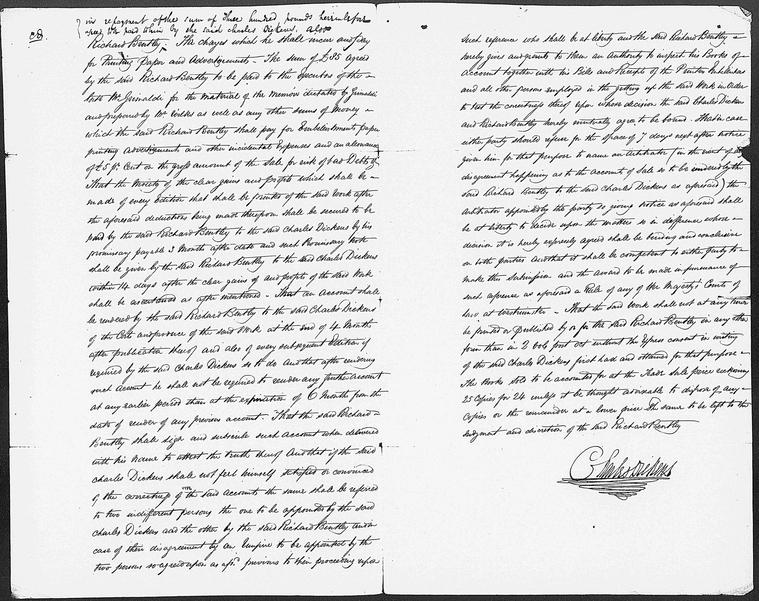 in repayment of the sum of Three hundred pounds hereinbefore
agreed to be paid to him by the said Charles Dickens, also
Richard Bentley. The charges which he shall incur and pay
for Printing Paper and Advertisements. The sum of £85 agreed
by the said Richard Bentley to be paid to the Executor of the
late Mr. Grimaldi for the Material of the Memoir dictated by Grimaldi
and prepared by Mr Wilks as well as any other sums of Money
which the said Richard Bentley shall pay for Embellishments paper
printing Advertisements and other incidental Expenses and an allowance
of £5 pr. Cent on the gross amount of the Sale for risk of bad Debts
That the Moiety of the clear gains and profits which shall be
made of every Edition that shall be printed of the said Work after
the aforesaid deductions being made thereupon shall be secured to be
paid by the said Richard Bentley to the said Charles Dickens by his
promissory payable 3 Months after date and such Promissory Note
shall be given by the said Richard Bentley to the said Charles Dickens
within 14 days after the clear gains of and profits of the said Work
shall be ascertained as after mentioned. That an account shall
be rendered by the said Richard Bentley to the said Charles Dickens
of the Costs and produce of the said Work at the end of 4 Months
after publication thereof and also of every subsequent Edition if
required by the said Charles Dickens so to do And that after rendering
such Account he shall not be required to render any further account
at any earlier period than at the expiration of 6 Months from the
date of render of any previous account. That the said Richard
Bentley shall sign and subscribe such Account when delivered
with his name to attest the truth thereof And that if the said
Charles Dickens shall not feel himself satisfied or convinced
of the correctness of the said accounts the same shall be referred
to two indifferent persons the one to be appointed by the said
Charles Dickens and the other by the said Richard Bentley and in
case of their disagreement by an Umpire to be appointed by the
two persons so agreed upon as afsd. previous to their proceeding upon
such reference who shall be at liberty and the said Richard Bentley
hereby gives and grants to them an Authority to inspect his Books of
account together with his Bills and Receipts of the Printer Publishers
and all other persons employed in the getting up the said Work in Order
to test the correctness thereof upon whose decision the said Charles Dickens
and Richard Bentley hereby mutually agree to be bound. And in case
either party should refuse for the space of 7 days next after notice
given him for that purpose to name an Arbitrator (in the event of
disagreement happening as to the account of Sale so to be rendered by the
said Richard Bentley to the said Charles Dickens as aforesaid) the
Arbitrator appointed by the party so giving notice as aforesaid shall
be at liberty to decide upon the matters so in difference whose
decision it is hereby expressly agreed shall be binding and conclusive
on both parties And that it shall be competent to either party to
make this Submission and the award to be made in pursuance of
such reference as aforesaid a Rule of any of Her Majesty's Courts of
law at Westminster. That the said Work shall not at any time
be printed or published by or for the said Richard Bentley in any other
form than in 2 vols post oct without the Express consent in writing
of the said Charles Dickens first had and obtained for that purpose
The Books sold to be accounted for at the Trade Sale price reckoning
25 Copies for 24 unless it be thought advisable to dispose of any
Copies or the remainder at a lower price the same to be left to the
Judgment and discretion of the said Richard Bentley
Charles Dickens